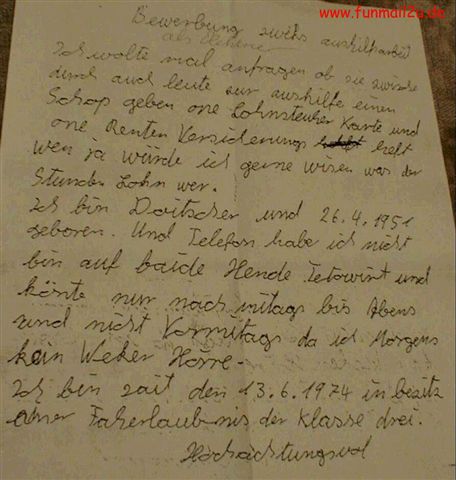 www.funmail2u.de
Bewerbung zweks aushilfsarbeit
als
Ich wolte mal anfragen ob sie zwüsche
durch auch leute zur aushilfe einen
Schop geben one Lohnsteuher Karte und
one Renten Versicherungs heft
wen ja würde ich gerne wisen was der
Stunden Lohn wer.
Ich bin Doitscher und 26.4.1951
geboren. Und Telefon habe ich nicht
bin auf baide Hende Tetowirt und
könte nur nach mitags bis Abens
und nicht Vormitags da ich Morgens
kein Weker Hörre.
Ich bin sait den 13.6.1974 in besitz
einer Faherlaubnis der Klasse drei.
Hochachtungsvol